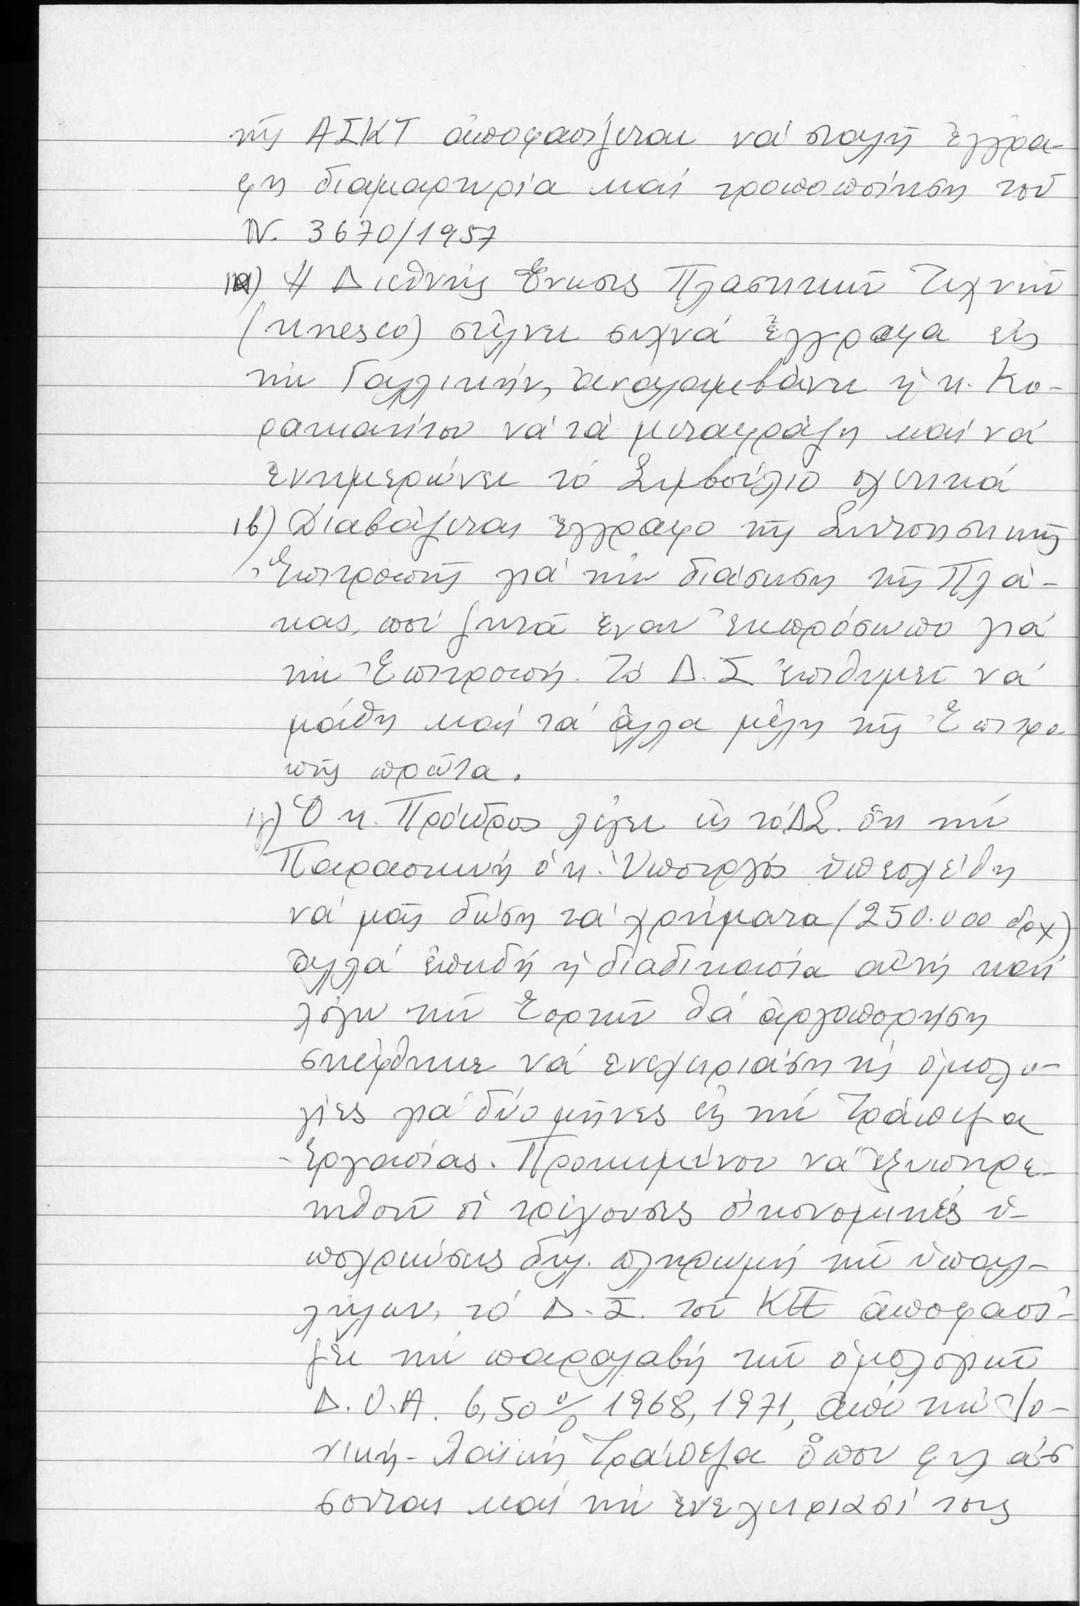 τῆς ΑΣΚΤ ἀποφασίζεται νά σταλῆ ἔγγρα-
φη διαμαρτυρία καί τροποποίηση τοῦ
Ν. 3670/1957
1α) Ἡ Διεθνής Ἕνωσις Πλαστικῶν Τεχνῶν
(Unesco) στέλνει συχνά ἔγγραφα εἰς
τήν Γαλλικήν, ἀναλαμβάνει ἡ κ.
νά τά μεταφράζη καί νά
ἐνημερώνει τό Συμβούλιο σχετικά
1β) Διαβάζεται ἔγγραφο τῆς Συντονιστικῆς
Ἐπιτροπῆς γιά τήν διάσωση τῆς Πλά-
κας, πού ζητᾶ ἕναν ἐκπρόσωπο γιά
τήν Ἐπιτροπή. Τό Δ.Σ ἐπιθυμεῖ νά
μάθη καί τά ἄλλα μέλη τῆς Ἐπιτρο
πῆς πρῶτα.
1γ) Ὁ κ. Πρόεδρος λέγει εἰς τό ΔΣ. ὅτι τήν
Παρασκευή ὁ κ. Ὑπουργός ὑπεσχέθη
νά μᾶς δώση τά χρήματα (250.000 δρχ)
ἀλλά ἐπειδή ἡ διαδικασία αὐτή καί
λόγω τῶν Ἑορτῶν θά ἀργοπορήση
σκέφθηκε νά ἐνεχυριάση τίς ὁμολο-
γίες γιά δύο μῆνες εἰς τήν Τράπεζα
Ἐργασίας. Προκειμένου νά ἐξυπηρε-
τηθοῦν οἱ τρέχουσες οἰκονομικές ὑ-
ποχρεώσεις δηλ. πληρωμή τῶν ὑπαλ-
λήλων, τό Δ.Σ. τοῦ ΚΠ ἀποφασί-
ζει τήν παραλαβή τῶν ὁμολογιῶν
Δ.Ο.Α. 6,50% 1968, 1971, ἀπό τήν Ἰο-
νική-Λαϊκή Τράπεζα ὅπου φυλάσ
σονται καί τήν ἐνεχυρίασί τους